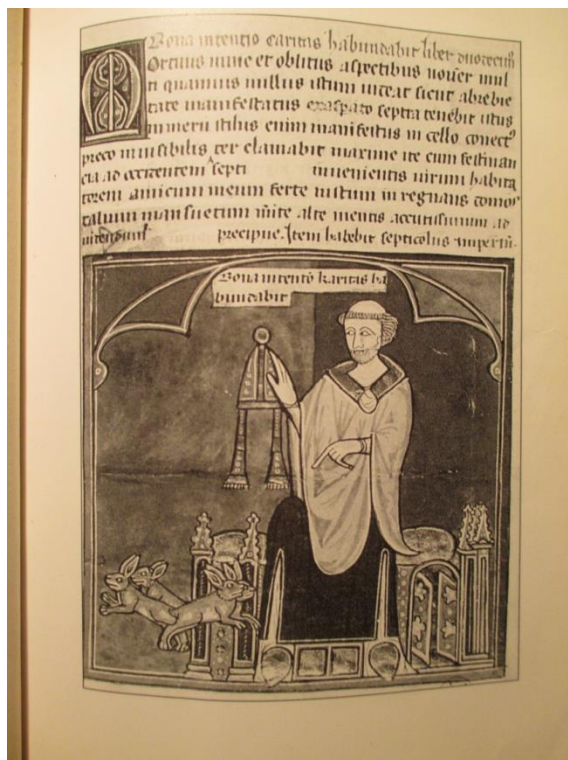 Bona intentio caritas habundabit liber duodecim9
Mortuus nunc et oblitus aspectibus noscer mul
ti quamuis nullus istum uideat sicut
tate manifestatus septra tenebit
stilus enim manifestus in celo
preco inuisibilis ter clamabit maxime ite cum festinan
cia ad occitentem septi inuenientis uirum habita
torem amicum meum ferte in regnans
caluum mansuetum alte mentis accutissimum ad
precipue. Item habebit septicolus imperiū.
Bona intentō karitas ha
bundabit